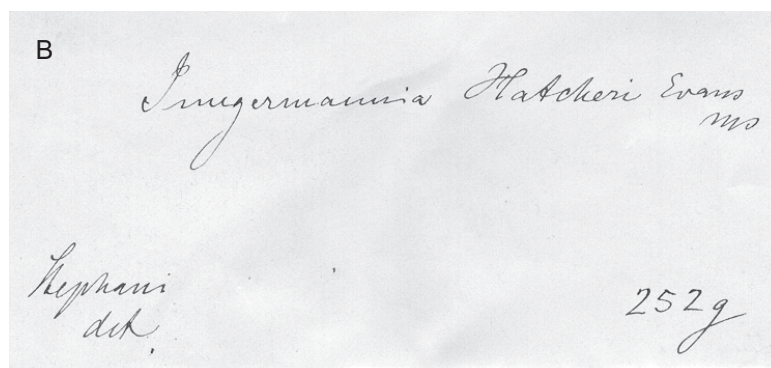 B
Jungermannia Hatcheri Evans
ms
Stephani
det.
252g